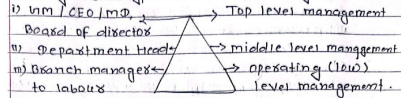 i) GM / CEO / MD, Top level management
Board of director
ii) Department Head middle level management
iii) Branch manager operating (low)
to labour level management.